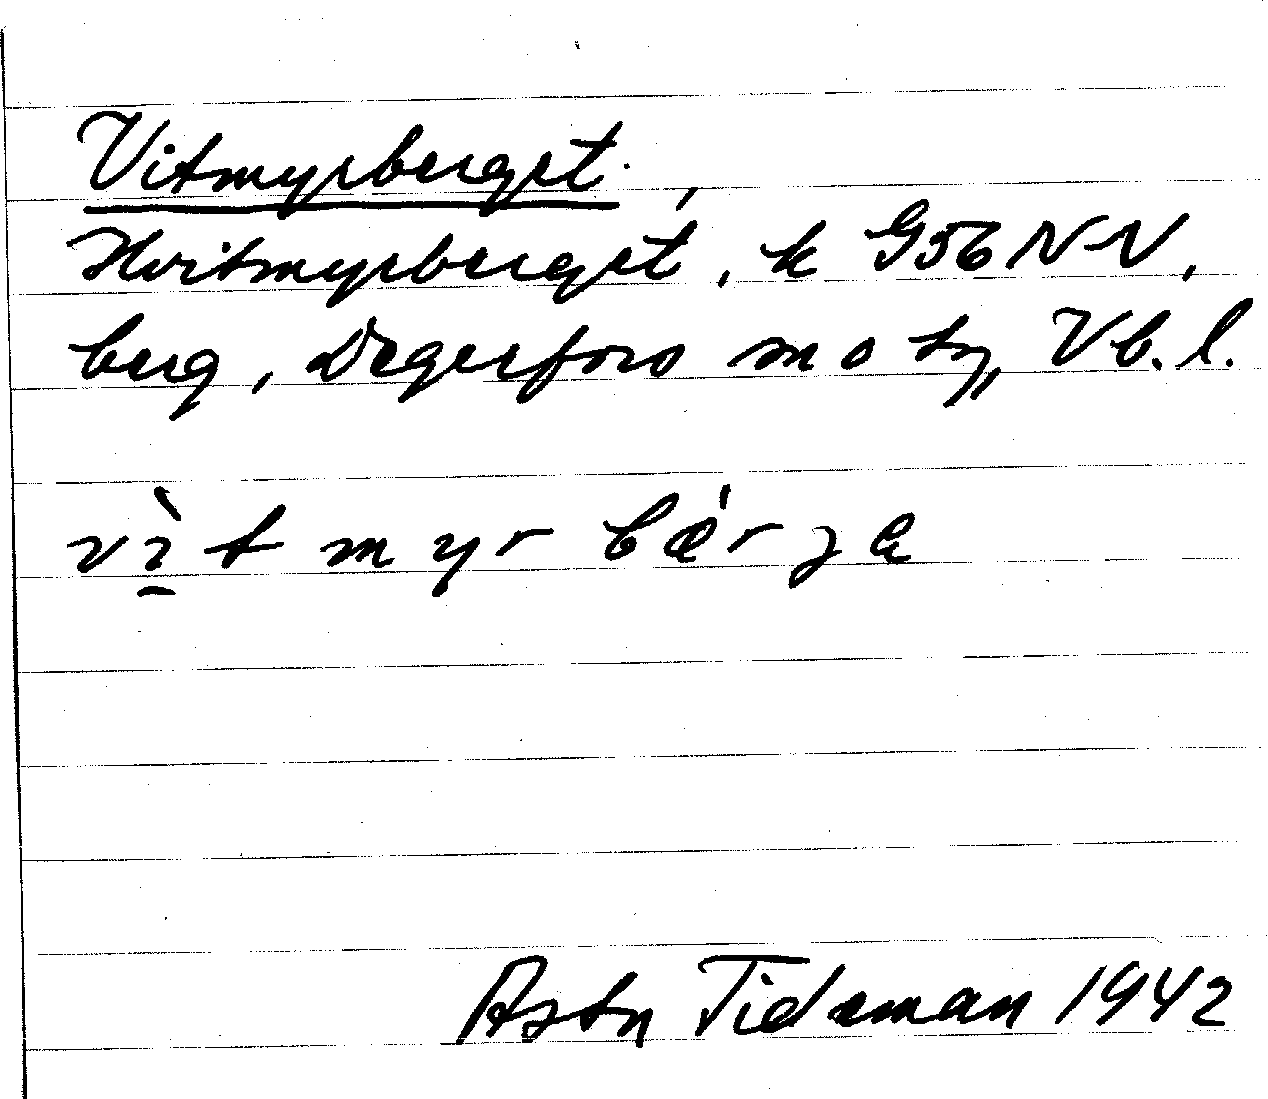 Vitmyrberget.,
Hvitmyrberget, k G56 N-V,
berg, Degerfors m o tg, Vb. l.
vìt myr bǽrʒe
Astn Tideman 1942